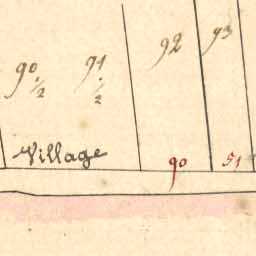 90 1/2 91 1/2 92 93
Village 90 51